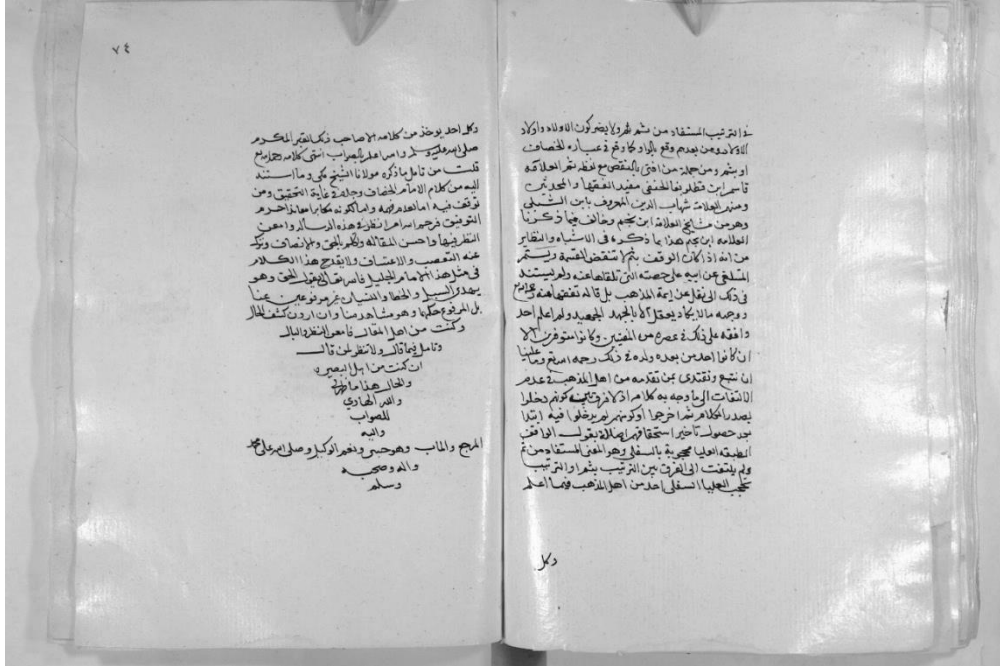 في الترتيب المستفاد من ثم ولا يضر كون الاولاد واولاد
الاولاد ومن بعدهم وقع بالواو كما وقع في عبارة الخصاف
او بثم ومن جملة من افتى بالنقض مع لفظه ثم العلامة
قاسم ابن قطلوبغا الحنفي مفيد الفقها والمحدثين
ومنهم العلامة شهاب الدين المعروف بابن الشلبي
وهو من مشايخ العلامة ابن نجيم وخالف فيما ذكرنا
العلامه ابن نجيم هذا بما ذكره في الاشباه والنظاير
من انه اذا كان الوقف بثم لا تنتقض القسمة ويستمر
المتلقي عن ابيه على حصته التي تلقاها عنه ولم يستند
في ذلك الى نقل عن ايمة المذهب بل قاله تفقها منه
ووجهه مما لا يكاد يعقل الا بالجهد الجهيد ولم اعلم احد
وافقه على ذلك في عصره من المفتيين وكانوا متوفرين الا
ان كانوا احد من بعده ولده في ذلك وجه اسنع وما علينا
ان نتبع ونقتدي بمن تقدمه من اهل المذهب في عدم
الالتفات الى ما وجه به كلامه اذ لا فرق بين كونهم دخلوا
بصدر الكلام ثم اخرجوا او كونهم لم يدخلوا فيه ابتدا
بعد حصول تاخير استحقاقهم بقول الواقف
الطبقه العليا محجوبة بالسفلي وهو المعنى المستفاد من ثم
ولم يلتفت الى الفرق بين الترتيب بثم او الترتيب
بحجب العليا السفلى احد من اهل المذهب فيما اعلم
وكل
٧٤
وكل احد يوخذ من كلامه الا صاحب ذلك القبر المكرم
صلى الله عليه وسلم والله اعلم بالصواب انتهى كلامه رحمه الله
قلت من تامل ما ذكره مولانا الشيخ مكي وما استند
اليه من كلام الامام الخصاف وجده في غاية التحقيق ومن
توقف فيه اما لعدم فهمه واما لكونه مكابر معاند احرم
التوفيق فرحم الله امرا نظر في هذه الرساله وامعن
النظر فيها واحسن المقاله وتكلم بالحق والانصاف وترك
عنه التعصب والاعتساف ولا يقدح هذا الكلام
في مثل هذا الامام الجليل فالله تعالى يقول الحق وهو
يهدي السبيل والخطا والنسيان غير مرفوعين عنا
بل المرفوع حكمها وهو مشاهد منا وان اردت كشف الحال
وكنت من اهل المقال فامعن النظر والبال
وتامل فيما قال ولا تنظر لمن قال
ان كنت من اهل البصيره
والحال هذا ما ظهر لي
والله الهادي
للصواب
واليه
المرجع والماب وهو حسبي ونعم الوكيل وصلى الله على محمد
واله وصحبه
وسلم